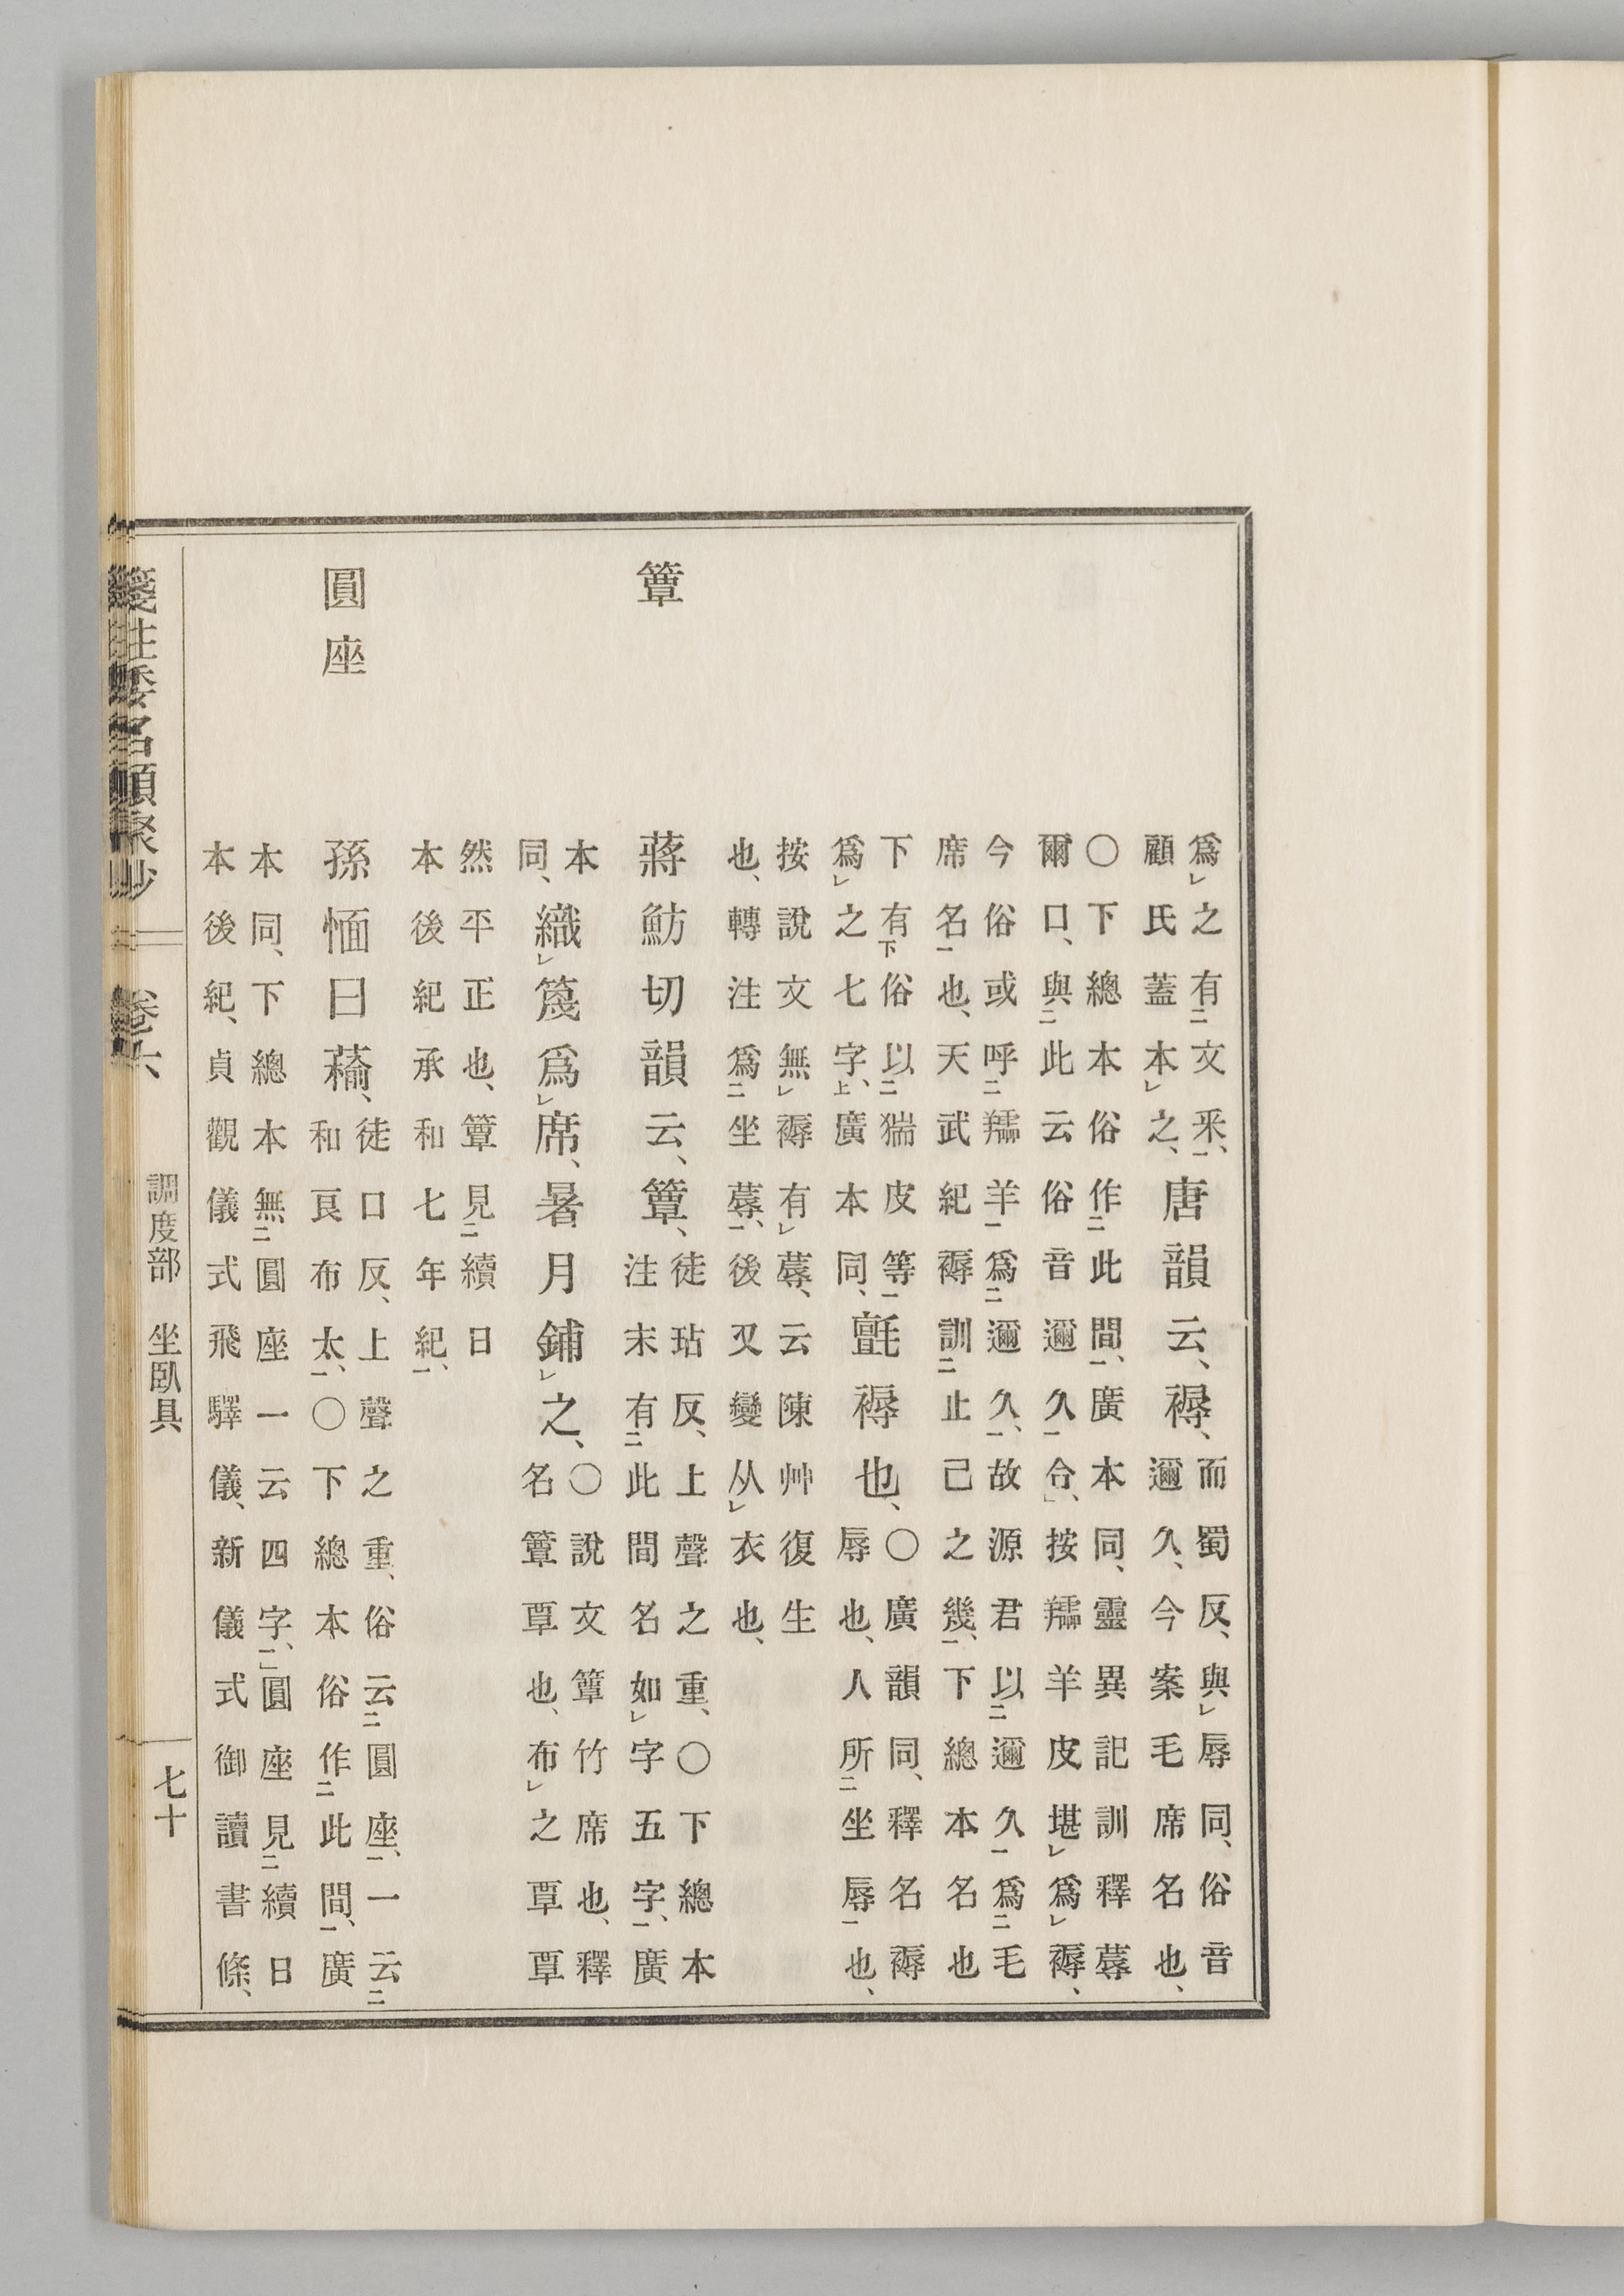 爲レ之有二文釆一、
顧氏蓋本レ之、
唐韻云、褥、
而蜀反、與レ辱同、俗音
邇久、今案毛席名也、
○下總本俗作二此間一、廣本同、靈異記訓釋蓐
爾口、與二此云俗音邇久一合、按羺羊皮堪レ爲レ褥、
今俗或呼二羺羊一爲二邇久一、故源君以二邇久一爲二毛
席名一也、天武紀褥訓二止己之幾一、下總本名也
下有下俗以二猯皮等一
爲レ之七字上、廣本同、
氈褥也、
○廣韻同、釋名褥
辱也、人所二坐辱一也、
按說文無レ褥有レ蓐、云陳艸復生
也、轉注爲二坐蓐一、後又變从レ衣也、
簟
蔣魴切韻云、簟、
徒玷反、上聲之重、○下總本
注末有二此間名如レ字五字一、廣
本
同、
織レ篾爲レ席、暑月鋪レ之、
○說文簟竹席也、釋
名簟覃也、布レ之覃覃
然平正也、簟見二續日
本後紀承和七年紀一、
圓座
孫愐曰、
徒口反、上聲之重、俗云二圓座一、一云二
和良布太一、○下總本俗作二此間一、廣
本同、下總本無二圓座一云四字一、圓座見二續日
本後紀、貞觀儀式飛驛儀、新儀式御讀書條、
箋注倭名類聚抄 卷六 調度部 坐臥具 七十